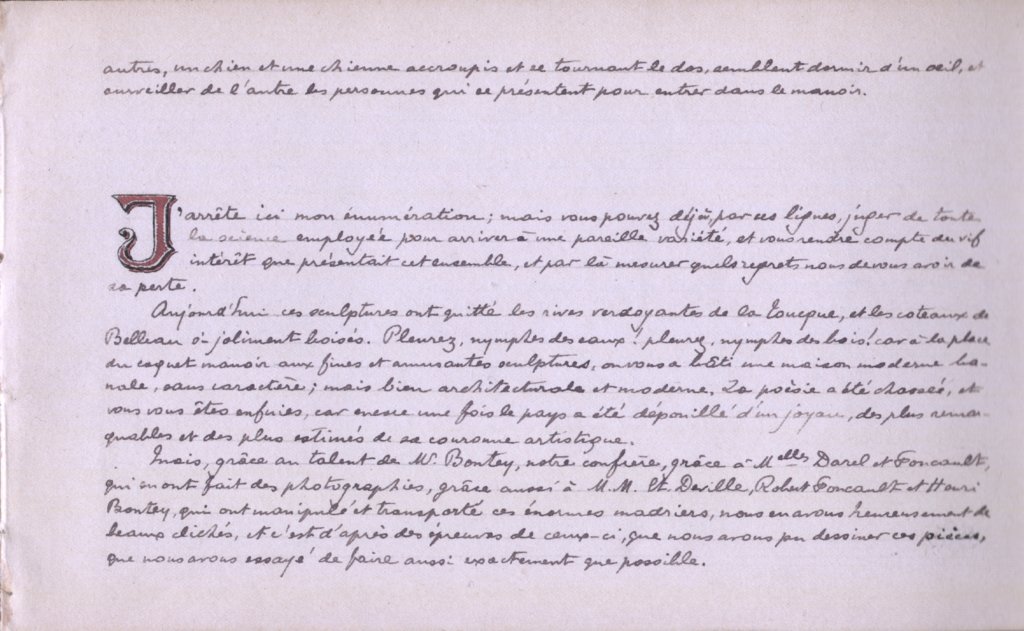 autres, un chien et une chienne accroupis et se tournant le dos, semblent dormir d'un oeil, et
surveiller de l'autre les personnes qui se présentent pour entrer dans le manoir.
J'arrête ici mon énumération; mais vous pouvez déjà, par ces lignes, juger de toute
la science employée pour arriver à une pareille variété, et vous rendre compte du vif
intérêt que présentait cet ensemble, et par là mesurer quels regrets nous devons avoir de
sa perte.
Aujourd'hui ces sculptures ont quitté les rives verdoyantes de la Toucque, et les coteaux de
Belleau si joliment boisés. Pleurez, nymphes des eaux! pleurez, nymphes des bois! car à la place
du coquet manoir aux fines et amusantes sculptures, on vous a bâti une maison moderne ba-
nale, sans caractère; mais bien architecturale et moderne. La poësie a été chassée, et
vous vous êtes enfuies, car encore une fois le pays a été dépouillé d'un joyau, des plus remar-
quables et des plus estimés de sa couronne artistique.
Mais, grâce au talent de Mr. Bontey, notre confrère, grâce à Melles Darel et Foucault,
qui en ont fait des photographies, grâce aussi à M.M. Et. Deville, Robert Foucault et Henri
Bontey, qui ont manipulé et transporté ces énormes madriers, nous en avons heureusement de
beaux clichés, et c'est d'après des épreuves de ceux-ci, que nous avons pu dessiner ces pièces,
que nous avons essayé de faire aussi exactement que possible.